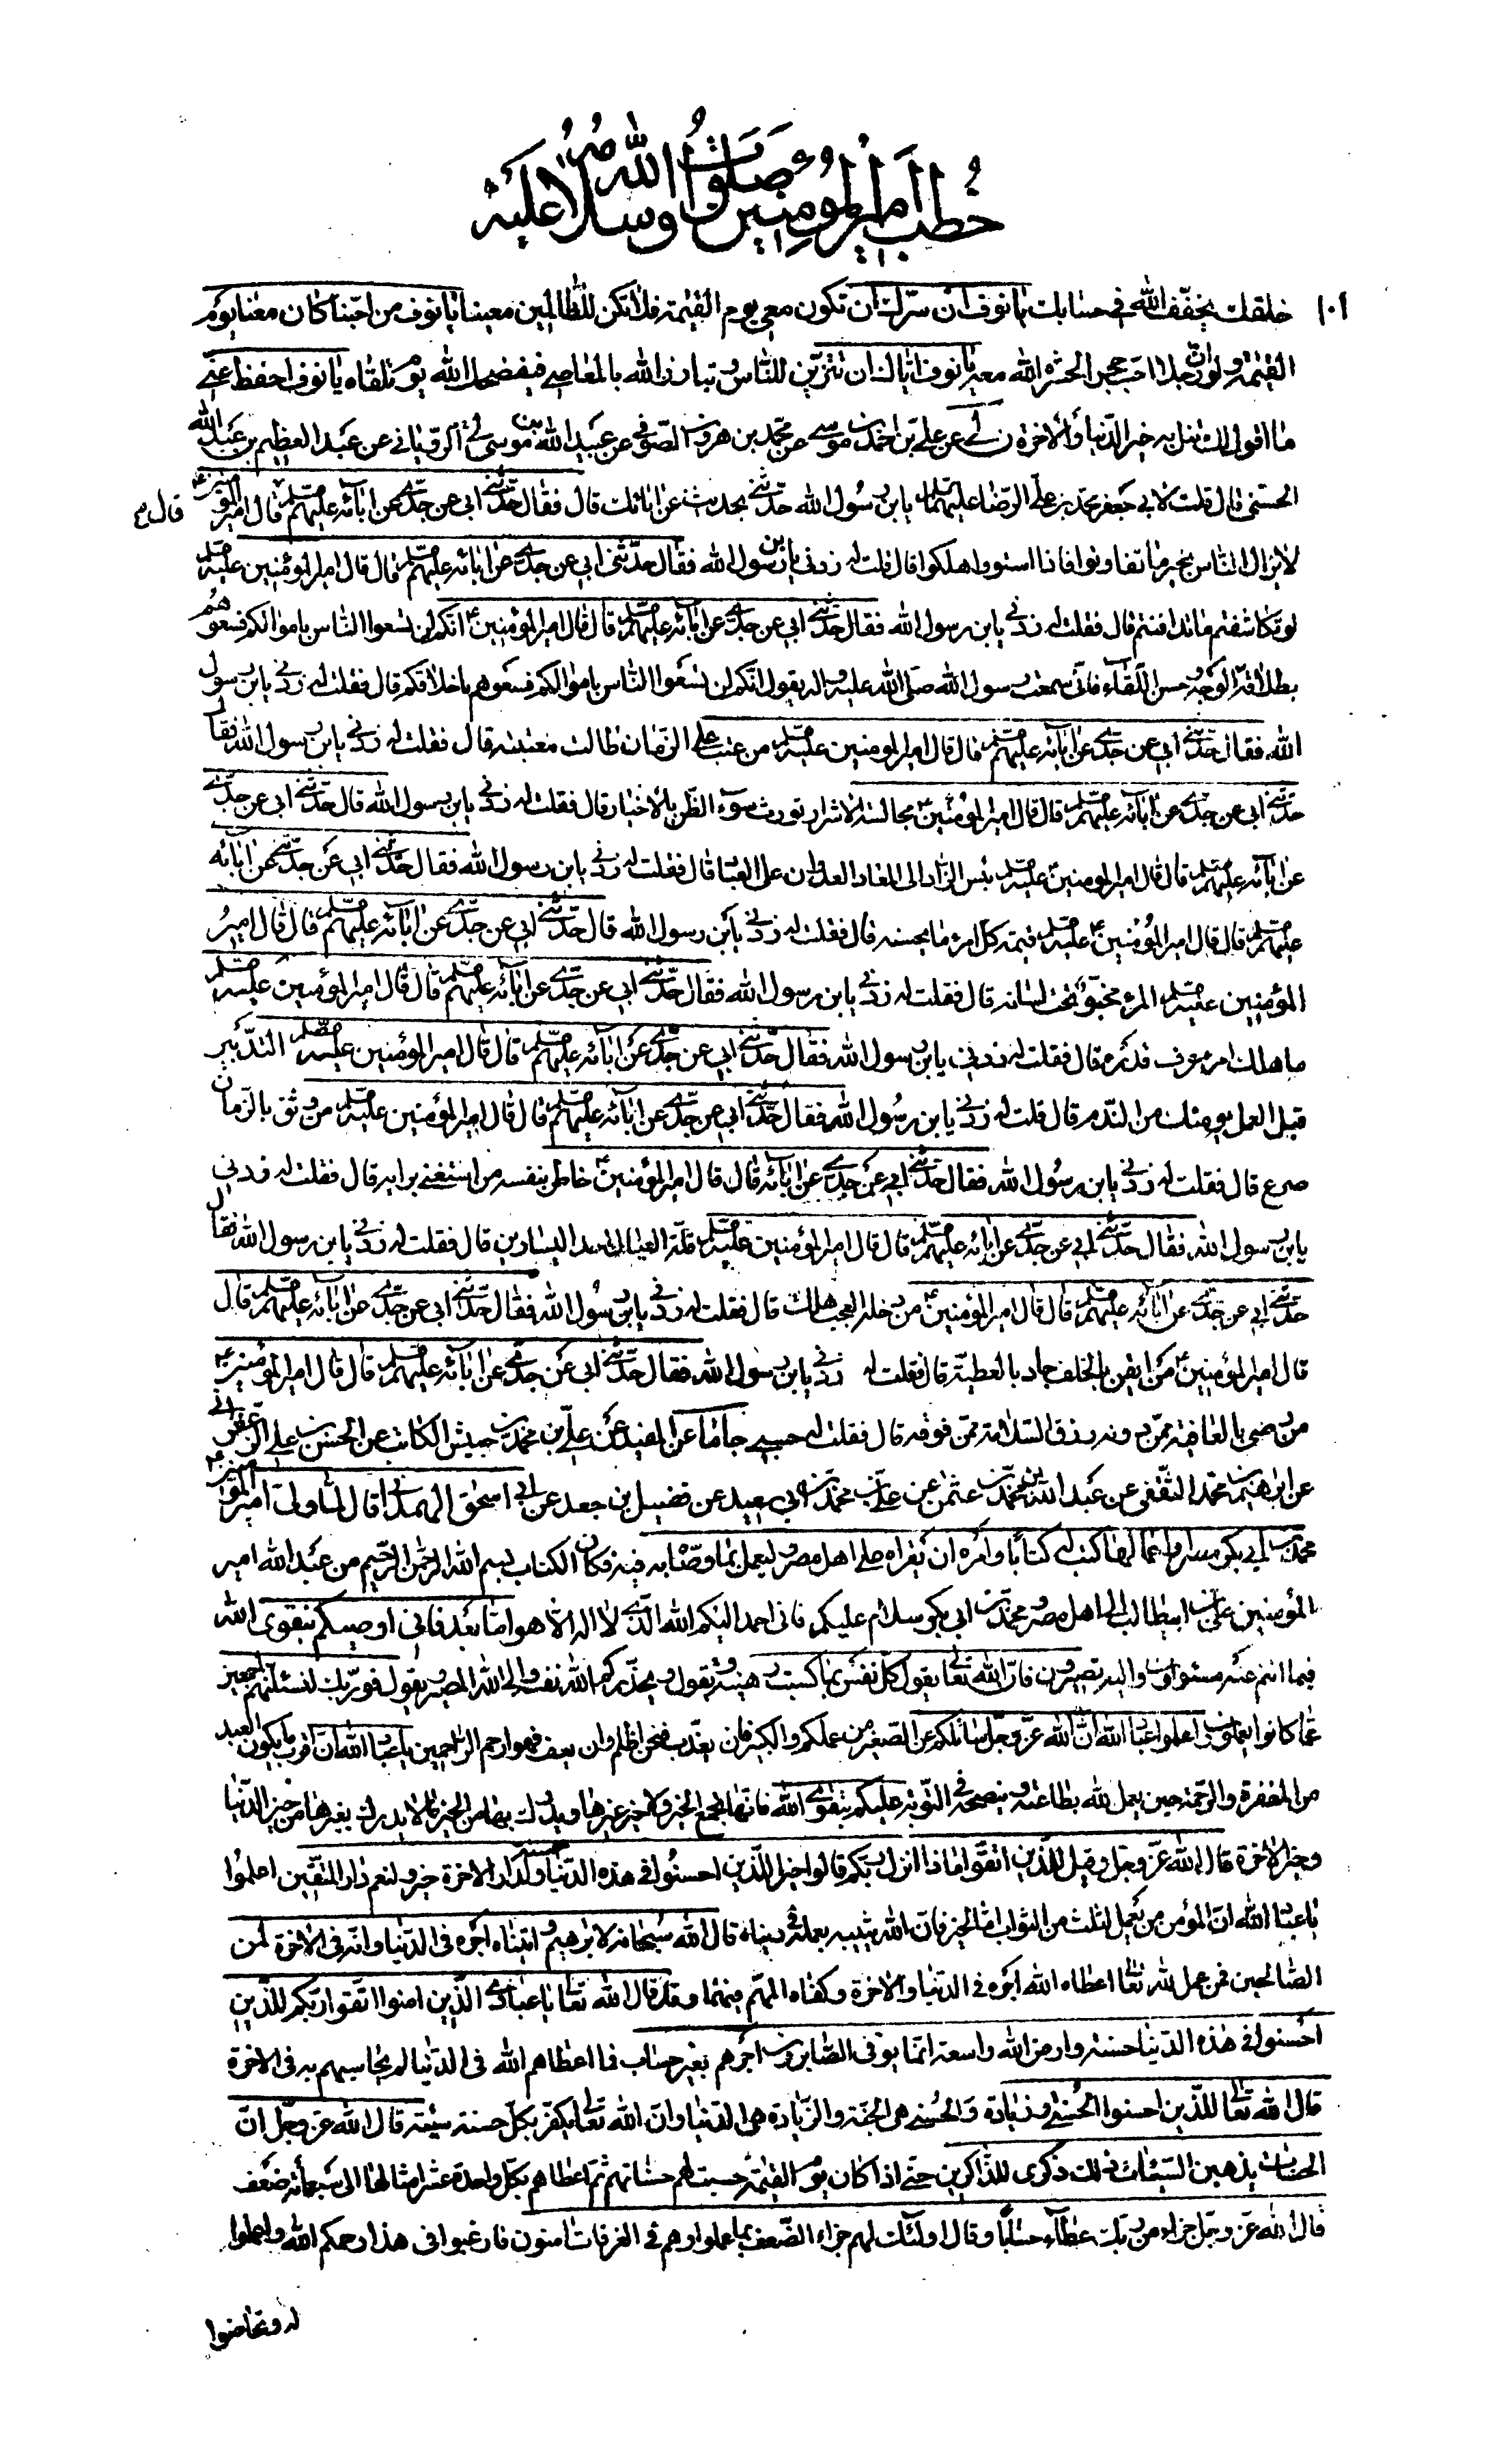 خُطَب أمير المؤمنين صَلَوٰاتُ اللّٰه وسلامُهُ عليَه
١٠١
خلقك يخفّف اللّٰه في حسابك يا نوف ان سرّك ان تكون معي يوم القيٰمة فلا تكن للظّالمين معينا يا نوف من احبّنا كان معنا يوم
القيٰمة ولو انّ رجلا احبّ حجرا لحشره اللّٰه معه يا نوف ايّاك ان تتزيّن للنّاس وتبارز اللّٰه بالمعاصي فيفضحك اللّٰه يوم تلقاه يا نوف احفظ عنّي
ما اقول لك تنل به خير الدّنيا والآخرة ن لي عن عليّ بن احمد بن موسى عن محمّد بن هرون الصّوفي عن عبيد اللّٰه بن موسى الرّوياني عن عبد العظيم بن عبد اللّٰه
الحسني قال قلت لابي جعفر محمّد بن علي الرّضا عليهما يابن رسول اللّٰه حدّثني بحديث عن آبائك قال فقال حدّثني ابي عن جدّي عن آبائه عليهم قال امير المؤمنين
قال
لا يزال النّاس بخير ما تفاوتوا فاذا استووا هلكوا قال قلت له زدني يابن رسول اللّٰه فقال حدّثني ابي عن جدّي عن آبائه عليهم قال قال امير المؤمنين عليه
لو تكاشفتم ما تدافنتم قال فقلت له زدني يابن رسول اللّٰه فقال حدّثني ابي عن جدّي عن آبائه عليهم قال قال امير المؤمنين ع انّكم لن تسعوا النّاس باموالكم فسعوهم
بطلاقة الوجه وحسن اللّقاء فانّي سمعت رسول اللّٰه صلّى اللّٰه عليه وآله يقول انّكم لن تسعوا النّاس باموالكم فسعوهم باخلاقكم قال فقلت له زدني يابن رسول
اللّٰه فقال حدّثني ابي عن جدّي عن آبائه عليهم قال قال امير المؤمنين عليه من عتب على الزّمان طالت معتبته قال فقلت له زدني يابن رسول اللّٰه فقال
حدّثني ابي عن جدّي عن آبائه عليهم قال قال امير المؤمنين ع مجالسة الاشرار تورث سوء الظّن بالاخيار قال فقلت له زدني يابن رسول اللّٰه قال حدّثني ابي عن جدّي
عن آبائه عليهم قال قال امير المؤمنين عليه بئس الزّاد الى المعاد العدوان على العباد قال فقلت له زدني يابن رسول اللّٰه فقال حدّثني ابي عن جدّي عن آبائه
عليهم قال قال امير المؤمنين ع عليه قيمة كلّ امرء ما يحسنه قال فقلت له زدني يابن رسول اللّٰه قال حدّثني ابي عن جدّي عن آبائه عليهم قال قال امير
المؤمنين عليه المرء مخبوّ تحت لسانه قال فقلت له زدني يابن رسول اللّٰه فقال حدّثني ابي عن جدّي عن آبائه عليهم قال قال امير المؤمنين عليه
ما هلك امرء عرف قدره قال فقلت له زدني يابن رسول اللّٰه فقال حدّثني ابي عن جدّي عن آبائه عليهم قال قال امير المؤمنين عليه التدبير
قبل العمل يؤمنك من النّدم قال قلت له زدني يابن رسول اللّٰه فقال حدّثني ابي عن جدّي عن آبائه عليهم قال قال امير المؤمنين عليه من وثق بالزّمان
صرع قال فقلت له زدني يابن رسول اللّٰه فقال حدّثني ابي عن جدّي عن آبائه قال قال امير المؤمنين ع خاطر بنفسه من استغنى برايه قال فقلت له زدني
يابن رسول اللّٰه فقال حدّثني ابي عن جدّي عن آبائه عليهم قال قال امير المؤمنين عليه قلّة العيال احد اليسارين قال فقلت له زدني يابن رسول اللّٰه فقال
حدّثني ابي عن جدّي عن آبائه عليهم قال قال امير المؤمنين ع من دخله العجب هلك قال فقلت له زدني يابن رسول اللّٰه فقال حدّثني ابي عن جدّي عن آبائه عليهم قال
قال امير المؤمنين ع من ايقن بالخلف جاد بالعطيّة قال فقلت له زدني يابن رسول اللّٰه فقال حدّثني ابي عن جدّي عن آبائه عليهم قال قال امير المؤمنين ع
من رضي بالعافية ممّن دونه رزق السّلامة ممّن فوقه قال فقلت له حسبي جا ما عن المفيد عن علي بن محمّد بن حبيش الكاتب عن الحسن بن علي الزّعفراني
عن ابرهيم بن محمّد الثقفي عن عبد اللّٰه بن محمّد بن عثمن عن علي بن محمّد بن ابي سعيد عن فضيل بن جعد عن ابي اسحق الهمداني قال لمّا ولّى امير المؤمنين ع
محمّد بن ابي بكر مصر واعمالها كتب له كتابا وامره ان يقراه على اهل مصر وليعمل بما وصّاه به فيه فكان الكتاب بسم اللّٰه الرّحمن الرّحيم من عبد اللّٰه امير
المؤمنين علي بن ابيطالب الى اهل مصر ومحمّد بن ابي بكر سلام عليكم فاني احمد اليكم اللّٰه الّذي لا اله الّا هو امّا بعد فانّي اوصيكم بتقوى اللّٰه
فيما انتم عنه مسئولون واليه تصيرون فانّ اللّٰه تعالى يقول كلّ نفس بما كسبت رهينة ويقول ويحذّركم اللّٰه نفسه والى اللّٰه المصير ويقول فوربّك لنسئلنّهم اجمعين
عمّا كانوا يعملون اعلموا عباد اللّٰه انّ اللّٰه عزّ وجلّ سائلكم عن الصّغير من عملكم والكبير فان يعذّب فنحن اظلم وان يعف فهو ارحم الرّاحمين يا عباد اللّٰه انّ اقرب ما يكون العبد
من المغفرة والرّحمة حين يعمل للّه بطاعته وينصحه في التّوبة عليكم بتقوى اللّٰه فانّها تجمع الخير ولا خير غيرها ويدرك بها من الخير ما لا يدرك بغيرها من خير الدّنيا
وخير الآخرة قال اللّٰه عزّ وجلّ وقيل للّذين اتّقوا ماذا انزل ربّكم قالوا خيرا للّذين احسنوا في هذه الدّنيا حسنة ولدار الآخرة خير ولنعم دار المتّقين اعلموا
يا عباد اللّٰه انّ المؤمن من يعمل لثلث من الثواب امّا الخير فانّ اللّٰه يثيبه بعمله في دنياه قال اللّٰه سبحانه لابرهيم وآتيناه اجره في الدّنيا وانّه في الآخرة لمن
الصّالحين فمن عمل للّه تعالى اعطاه اللّٰه اجره في الدّنيا والآخرة وكفاه المهمّ فيهما وقد قال اللّٰه تعالى يا عبادي الّذين امنوا اتّقوا ربّكم للّذين
احسنوا في هذه الدّنيا حسنة وارض اللّٰه واسعة انّما يوفّى الصّابرون اجرهم بغير حساب فما اعطاهم اللّٰه في الدّنيا لم يحاسبهم به في الآخرة
قال اللّٰه تعالى للّذين احسنوا الحسنى وزيادة والحسنى هي الجنّة والزّيادة هي الدّنيا وانّ اللّٰه تعالى يكفّر بكلّ حسنة سيّئة قال اللّٰه عزّ وجلّ انّ
الحسنات يذهبن السّيّئات ذلك ذكرى للذّاكرين حتّى اذا كان يوم القيٰمة حسبت لهم حسناتهم ثمّ اعطاهم بكلّ واحدة عشر امثالها الى سبعمائة ضعف
قال اللّٰه عزّ وجلّ جزاء من ربّك عطاء حسابا وقال اولئك لهم جزاء الضّعف بما عملوا وهم في الغرفات امنون فارغبوا في هذا رحمكم اللّٰه واعملوا
له وتحاضوا